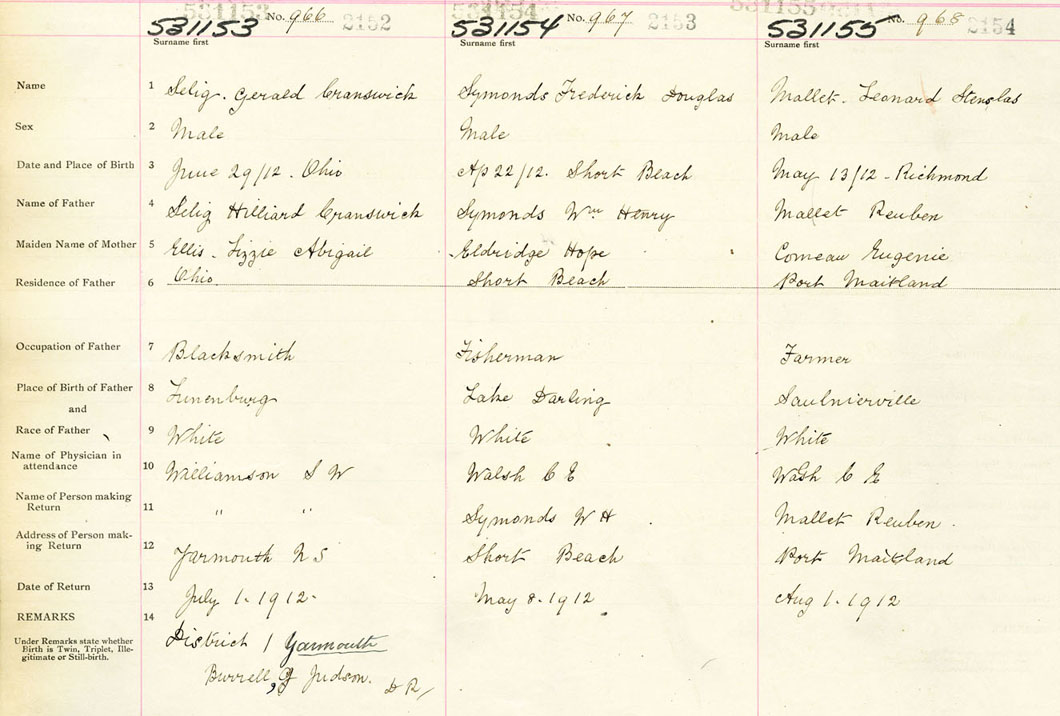 531153 No. 966 2152 531154 No. 967 2153 531155 No. 968 2154
Surname first Surname first Surname first
Name 1 Selig. Gerald Cranswick Symonds Frederick Douglas Mallet. Leonard
Sex 2 Male Male Male
Date and Place of Birth 3 June 29/12. Ohio Ap 22/12. Short Beach May 13/12 - Richmond
Name of Father 4 Selig Hilliard Cranswick Symonds Wm Henry Mallet Reuben
Maiden Name of Mother 5 Ellis. Lizzie Abigail Eldridge Hope Comeau Eugenie
Residence of Father 6 Ohio. Short Beach Port Maitland
Occupation of Father 7 Blacksmith Fisherman Farmer
Place of Birth of Father 8 Lunenburg Lake Darling Saulnierville
and
Race of Father 9 White White White
Name of Physician in
attendance 10 Williamson S W Walsh C E Walsh C E
Name of Person making
Return 11 " " Symonds W H Mallet Reuben.
Address of Person mak-
ing Return 12 Yarmouth N S Short Beach Port Maitland
Date of Return 13 July 1. 1912. May 8. 1912 Aug 1. 1912
REMARKS 14
Under Remarks state whether
Birth is Twin, Triplet, Ille-
gitimate or Still-birth.
District 1 Yarmouth
Burrell, Judson. D R/